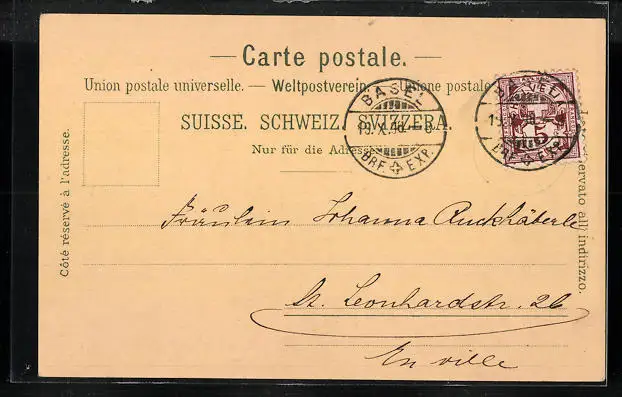 — Carte postale. —
Union postale universelle. — Weltpostverein. — Unione postale
SUISSE. SCHWEIZ. SVIZZERA.
Nur für die Adresse
Côté réservé à l'adresse.
BASEL
BRF. EXP.
BASEL
BRF. EXP.
5
Fräulein Johanna Ruckhäberle
St. Leonhardstr. 26
En ville
all' indirizzo.